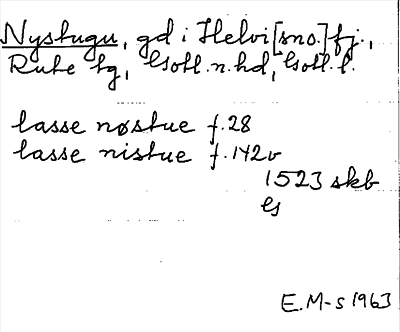 Nystugu, gd i Helvi [sno.] fj.,
Rute tg, Gotl. n. hd, Gotl. l.
lasse nøstue f. 28
lasse nistue f. 142v
1523 skb
Es
E. M-s 1963